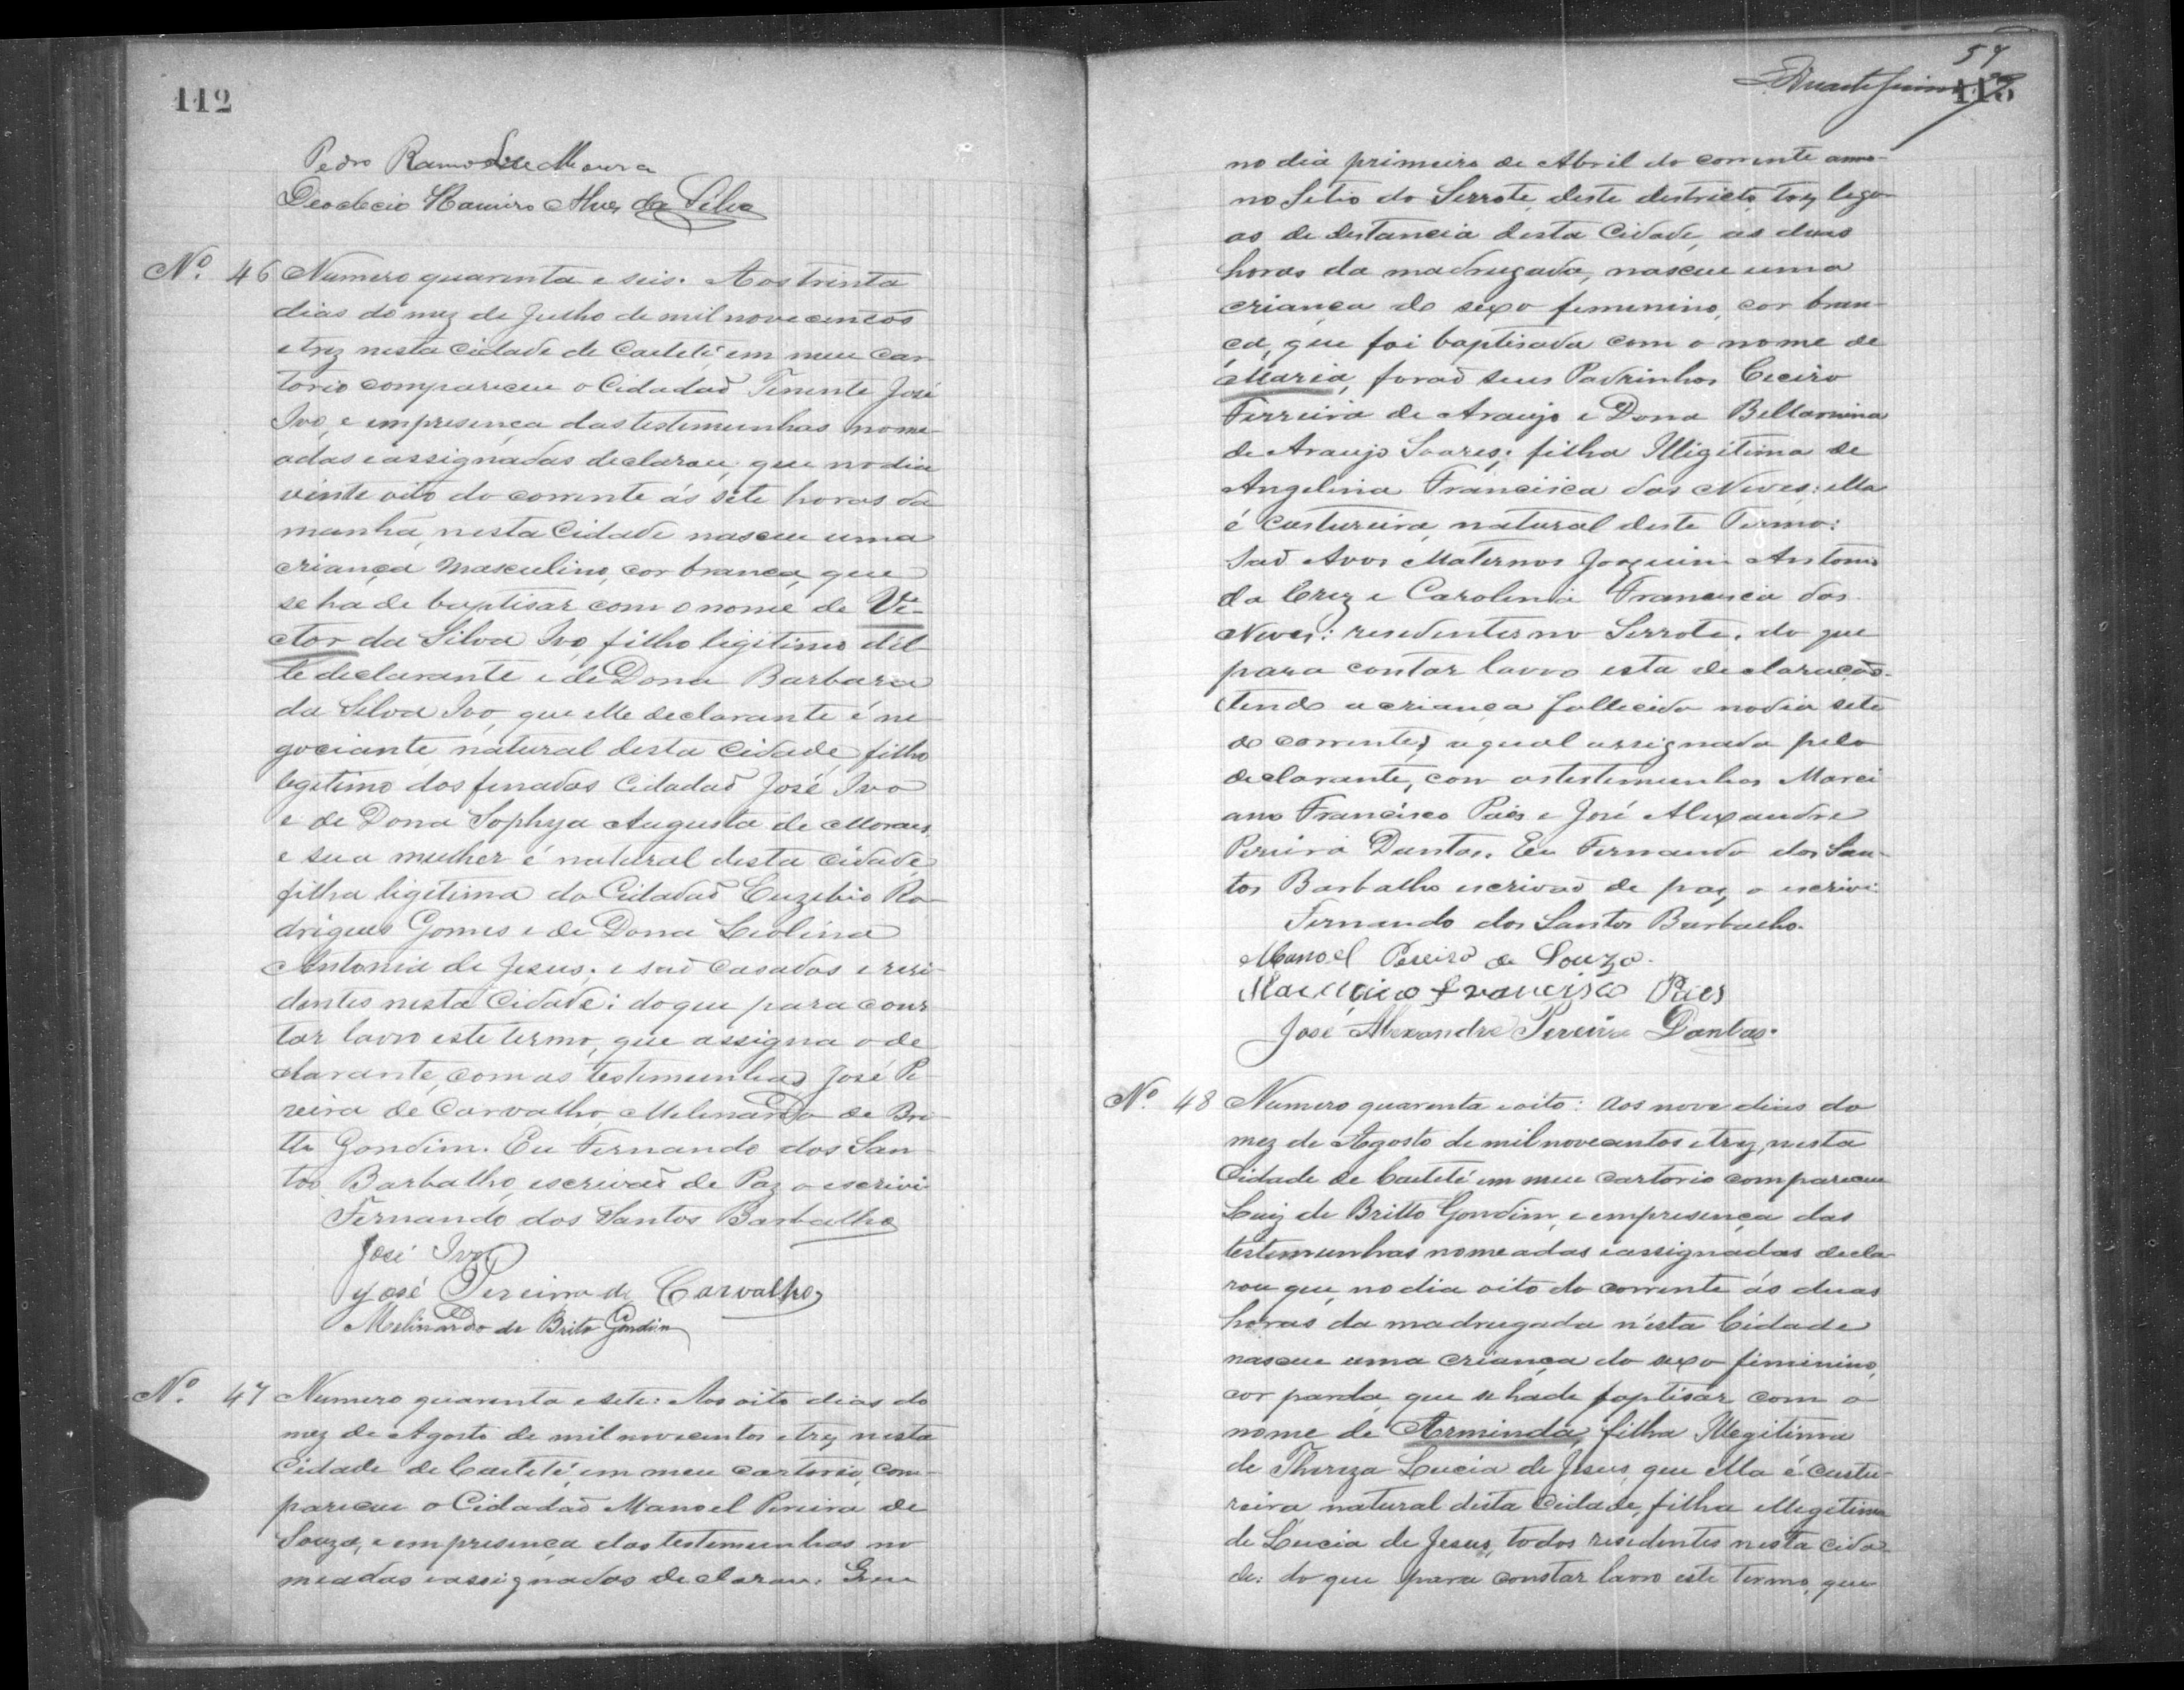 112
Pedro Ramos de Moura
Deoclecio Ramiro Alves da Silva
Nº. 46 Numero quarenta e seis. Aos trinta
dias do mez de Julho de mil nove centos
e trez nesta Cidade de Caeteté, em meu Car
torio compareceu o Cidadaõ Tenente José
Ivo, e empresença das testemunhas nome
adas e assignadas declarou, que no dia
vinte oito do corrente ás sete horas da
manhã, nesta Cidade nasceu uma
criança masculino, cor branca, que
se ha de baptisar com o nome de Vi-
ctor da Silva Ivo, filho legitimo del-
le declarante e de Dona Barbara
da Silva Ivo, que elle declarante é ne
gociante, natural desta Cidade, filho
legitimo dos finados Cidadaõ José Ivo
e de Dona Sophya Augusta de Moraes,
e sua mulher é natural desta cidade,
filha ligitima do Cidadaõ Euzebio Ro-
drigues Gomes e de Dona Leolina
Antonia de Jesus; e saõ casados e resi
dentes nesta Cidade: do que para cons
tar lavro este termo, que assigna o de
clarante, com as testemunhas José Pe
reira de Carvalho, Melinardo de Bri
tto Gondim. Eu Fernando dos San
tos Barbalho, escrivaõ de Paz o escrivi
Fernando dos Santos Barbalho
José Ivo
José Pereira de Carvalho
Melinardo de Brito Gondim
Nº. 47 Numero quarenta e sete: Aos oito dias do
mez de Agosto de mil novecentos e trez nesta
Cidade de Caeteté, em meu cartorio, com-
pareceu o Cidadaõ Manoel Pereira de
Souza, e em presença das testemunhas no
meadas e assignadas declarou: Que
57
113
no dia primeiro de Abril do corrente anno
no Sitio do Serrote, deste destricto, trez lego
as de distancia desta Cidade, as duas
horas da madrugada, nasceu uma
criança do sexo femenino, cor bran-
ca, que foi baptisada com o nome de
Maria, foraõ seus Padrinhos Ceciro
Ferreira de Araujo e Dona Bellarmina
de Araujo Soares; filha Illigitima de
Angelina Francisca das Neves; ella
é custureira, natural deste Termo:
Saõ Avos Maternos Joaquim Antonio
da Cruz e Carolina Francisca das
Neves: residentes no Serrote. do que
para contar lavro esta declaração
(tendo a criança fallecido no dia sete
do corrente) a qual assignada pelo
declarante, com as testemunhas Marci
ano Francisco Paes e José Alexandre
Pereira Dantas. Eu Fernando dos San-
tos Barbalho escrivaõ de paz, o escrivi.
Fernando dos Santos Barbalho.
Manoel Pereira de Souza.
Marciano Francisco Paes
José Alexandre Pereira Dantas.
Nº. 48 Numero quarenta e oito: Aos nove dias do
mez de Agosto de mil novecentos e trez, nesta
Cidade de Caeteté em meu cartorio compareceu
Luiz de Britto Gondim, e empresença das
testemunhas nomeadas e assignadas decla-
rou que, no dia oito do corrente ás duas
horas da madrugada n'esta Cidade
nasceu uma criança do sexo fiminino,
cor parda, que se hade baptisar com o
nome de Arminda, filha Illegitima
de Thereza Lucia de Jesus, que ella é custu-
reira, natural desta Cidade, filha illegetima
de Lucia de Jesus, todos residentes nesta cida-
de: do que para constar lavro este termo, que